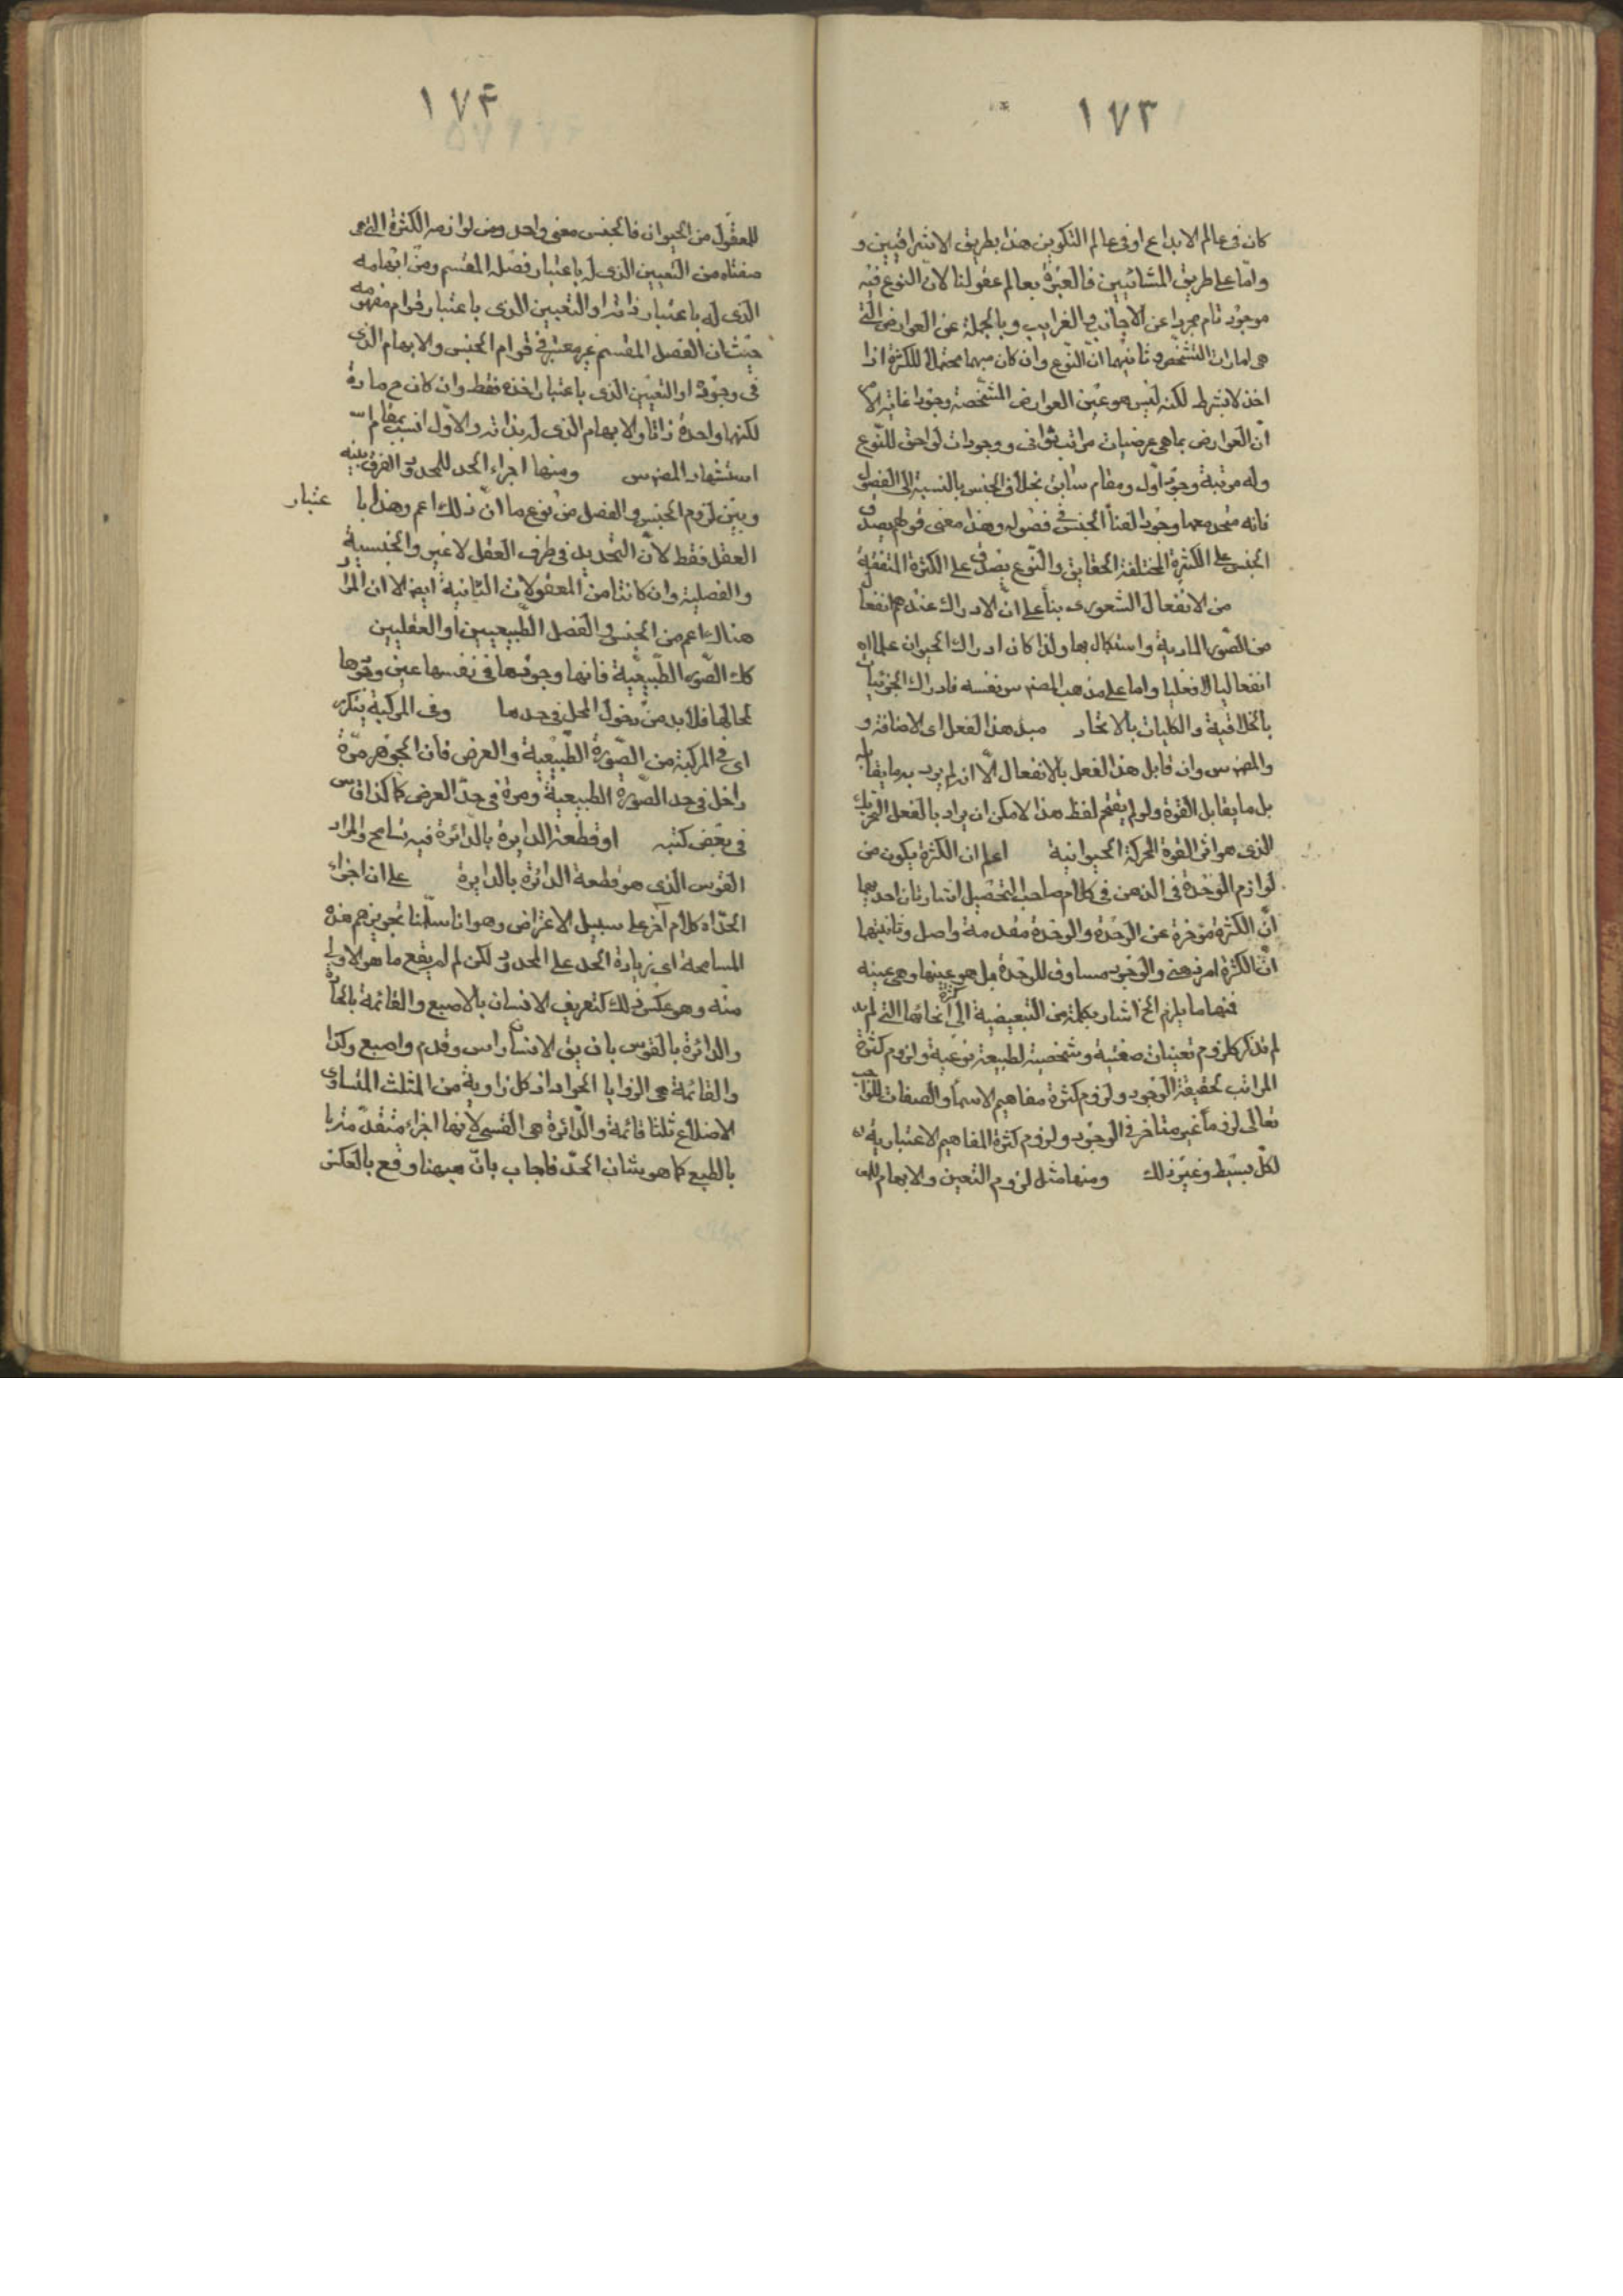 ١٧٣
كان فى عالم الابداع او فى عالم التكوين هذا بطريق الاشراقيين و
وامّا على طريق المشائيين فالعبرة بعالم عقولنا لانّ النوع فيه
موجود تام مجرد عن الاجانب والغرايب وبالجملة عن العوارض التى
هى امارات التشخّص وثانيهما انّ النّوع وان كان مبهما محتملا للكثرة اذا
اخذ لا بشرط لكنه ليس هو عين العوارض المشخّصة وجودا غايته الا
انّ العوارض بما هى عرضيات مراتب ثوانى ووجودات لواحق للنّوع
وله مرتبة وجود اول ومقام سابق بخلاف الجنس بالنسبة الى الفصول
فانه متحد معها وجودا لفناء الجنس فى فصوله وهذا معنى قولهم يصدق
الجنس على الكثرة المختلفة الحقايق والنّوع يصدق على الكثرة المتفقة
من الانفعال الشعورى بناء على انّ الادراك عندهم انفعال
من الصّور المادية واستكمال بها ولذا كان ادراك الحيوان علما
انفعاليا لا فعليا واما على مذهب المصنف س نفسه فادراك الجزئيات
بالخلاقية والكليات بالاتحاد مبدء هذا الفعل اى الاضافة و
والمصنف س وان قابل هذا الفعل بالانفعال الّا انه لم يرد به ما يقابله
بل ما يقابل القوة ولو لم يقتحم لفظ هذا لامكن ان يراد بالفعل التحريك
الذى هو اثر القوة المحركة الحيوانية اعلم ان الكثرة يكون من
لوازم الوحدة فى الذهن فى كلام صاحب التحصيل اشارتان احديهما
انّ الكثرة مؤخرة عن الوحدة والوحدة مقدمة واصل وثانيتهما
انّ الكثرة امر ذهنى والوجود مساوق للوحدة بل هو عينها وهى عينه
فمنها ما يلزم الخ اشار بكلمة من التبعيضية الى كثرة انحائها التى لم
لم تذكر كلزوم تعينات صنفية وشخصية لطبيعة نوعية ولزوم كثرة
المراتب لحقيقة الوجود ولزوم كثرة مفاهيم الاسماء والصفات للواجب
تعالى لزوما غير متاخر فى الوجود ولزوم كثرة المفاهيم الاعتبارية
لكلّ بسيط وغير ذلك ومنها مثل لزوم التعين والابهام للمعـ
١٧٤
للمعقول من الحيوان فالجنس معنى واحد ومن لوازمه الكثرة التى هى
صفتاه من التعيين الذى له باعتبار فصله المقسم ومن ابهامه
الذى له باعتبار ذاته او التعيين الذى باعتبار قوام مفهومه
حيث ان الفصل المقسم غير معتبر فى قوام الجنس والابهام الذى
فى وجوده او التعيين الذى باعتبار اخذه فقط وان كان ح مادة
لكنها واحدة ذاتا والابهام الذى له بذاته والاول انسب بمقام
استشهاد المصنف س ومنها اجراء الحد للمحدود الفرق بينه
وبين لزوم الجنس والفصل من نوع ما انّ ذلك اعم وهذا با عتبار
العقل فقط لانّ التحديد فى ظرف العقل لا غير والجنسية
والفصلية وان كانتا من المعقولات الثانية ايضا الا ان المراد
هناك اعم من الجنس والفصل الطّبيعيين او العقليين
كك الصّور الطّبيعيّة فانها وجودها فى نفسها عين وجودها
لمحالها فلا بد من دخول المحل فى حدها وفى المركبة يتكرر
اى فى المركبة من الصّورة الطّبيعيّة والعرض فان الجوهر مرّة
داخل فى حد الصّورة الطبيعية ومرة فى حدّ العرض كما
فى بعض كتبه او قطعة الدايرة بالدائرة فيه تسامح والمراد
القوس الّذى هو قطعة الدائرة بالدايرة على ان اجزاء
الحدّ اه كلام آخر على سبيل الاعتراض وهو انا سلّمنا تجويزهم هذه
المسامحة اى زيادة الحد على المحدود لكن لم لم يقع ما هو الاولى
منه وهو عكس ذلك كتعريف الانسان بالاصبع والقائمة بالحادة
والدائرة بالقوس بان يق الانسان راس وقدم واصبع وكذا
والقائمة هى الزوايا الحواد اذ كل زاوية من المثلث المتساوى
الاضلاع ثلثا قائمة والدّائرة هى القسى لانها اجزاء متقدّمة
بالطبع كما هو شان الحدّ فاجاب بانّ هيهنا وقع بالعكس